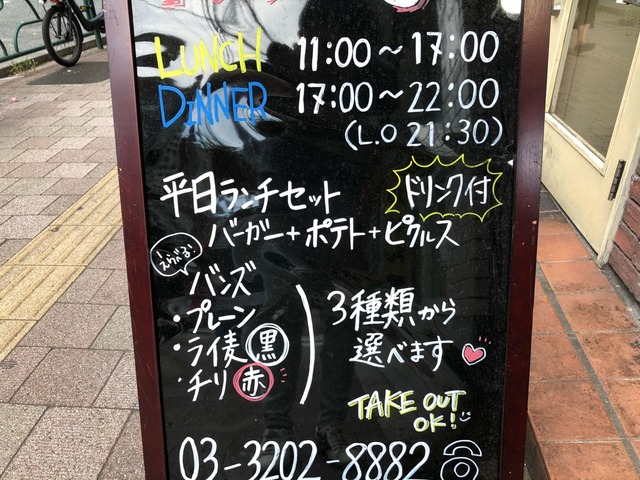 LUNCH 11:00～17:00
DINNER 17:00～22:00
(L.O 21:30)
平日ランチセット ドリンク付
バーガー+ポテト+ピクルス
えらべる!
バンズ
・プレーン
・ライ麦 黒
・チリ 赤
3種類から
選べます
TAKE OUT
OK!
03-3202-8882